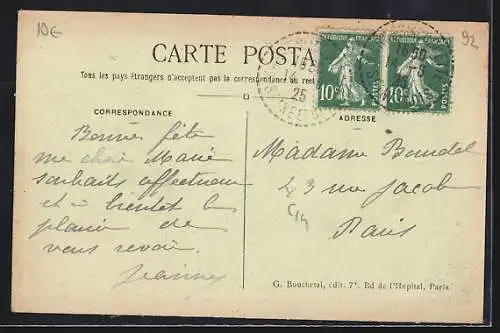 10€
92
CARTE POSTA
Tous les pays étrangers n'acceptent pas la correspondance au
REPUBLIQUE FRANÇAISE
10c
POSTES
10c
POSTES
25
CORRESPONDANCE
ADRESSE
Bonne fête
ma chère Marie
souhaits affectueux
et à bientôt le
plaisir de
vous revoir.
Jeanne
Madame Boudet
43 rue Jacob
Paris
G. Bouchetal, édit. 7, Bd de l'Hôpital, Paris